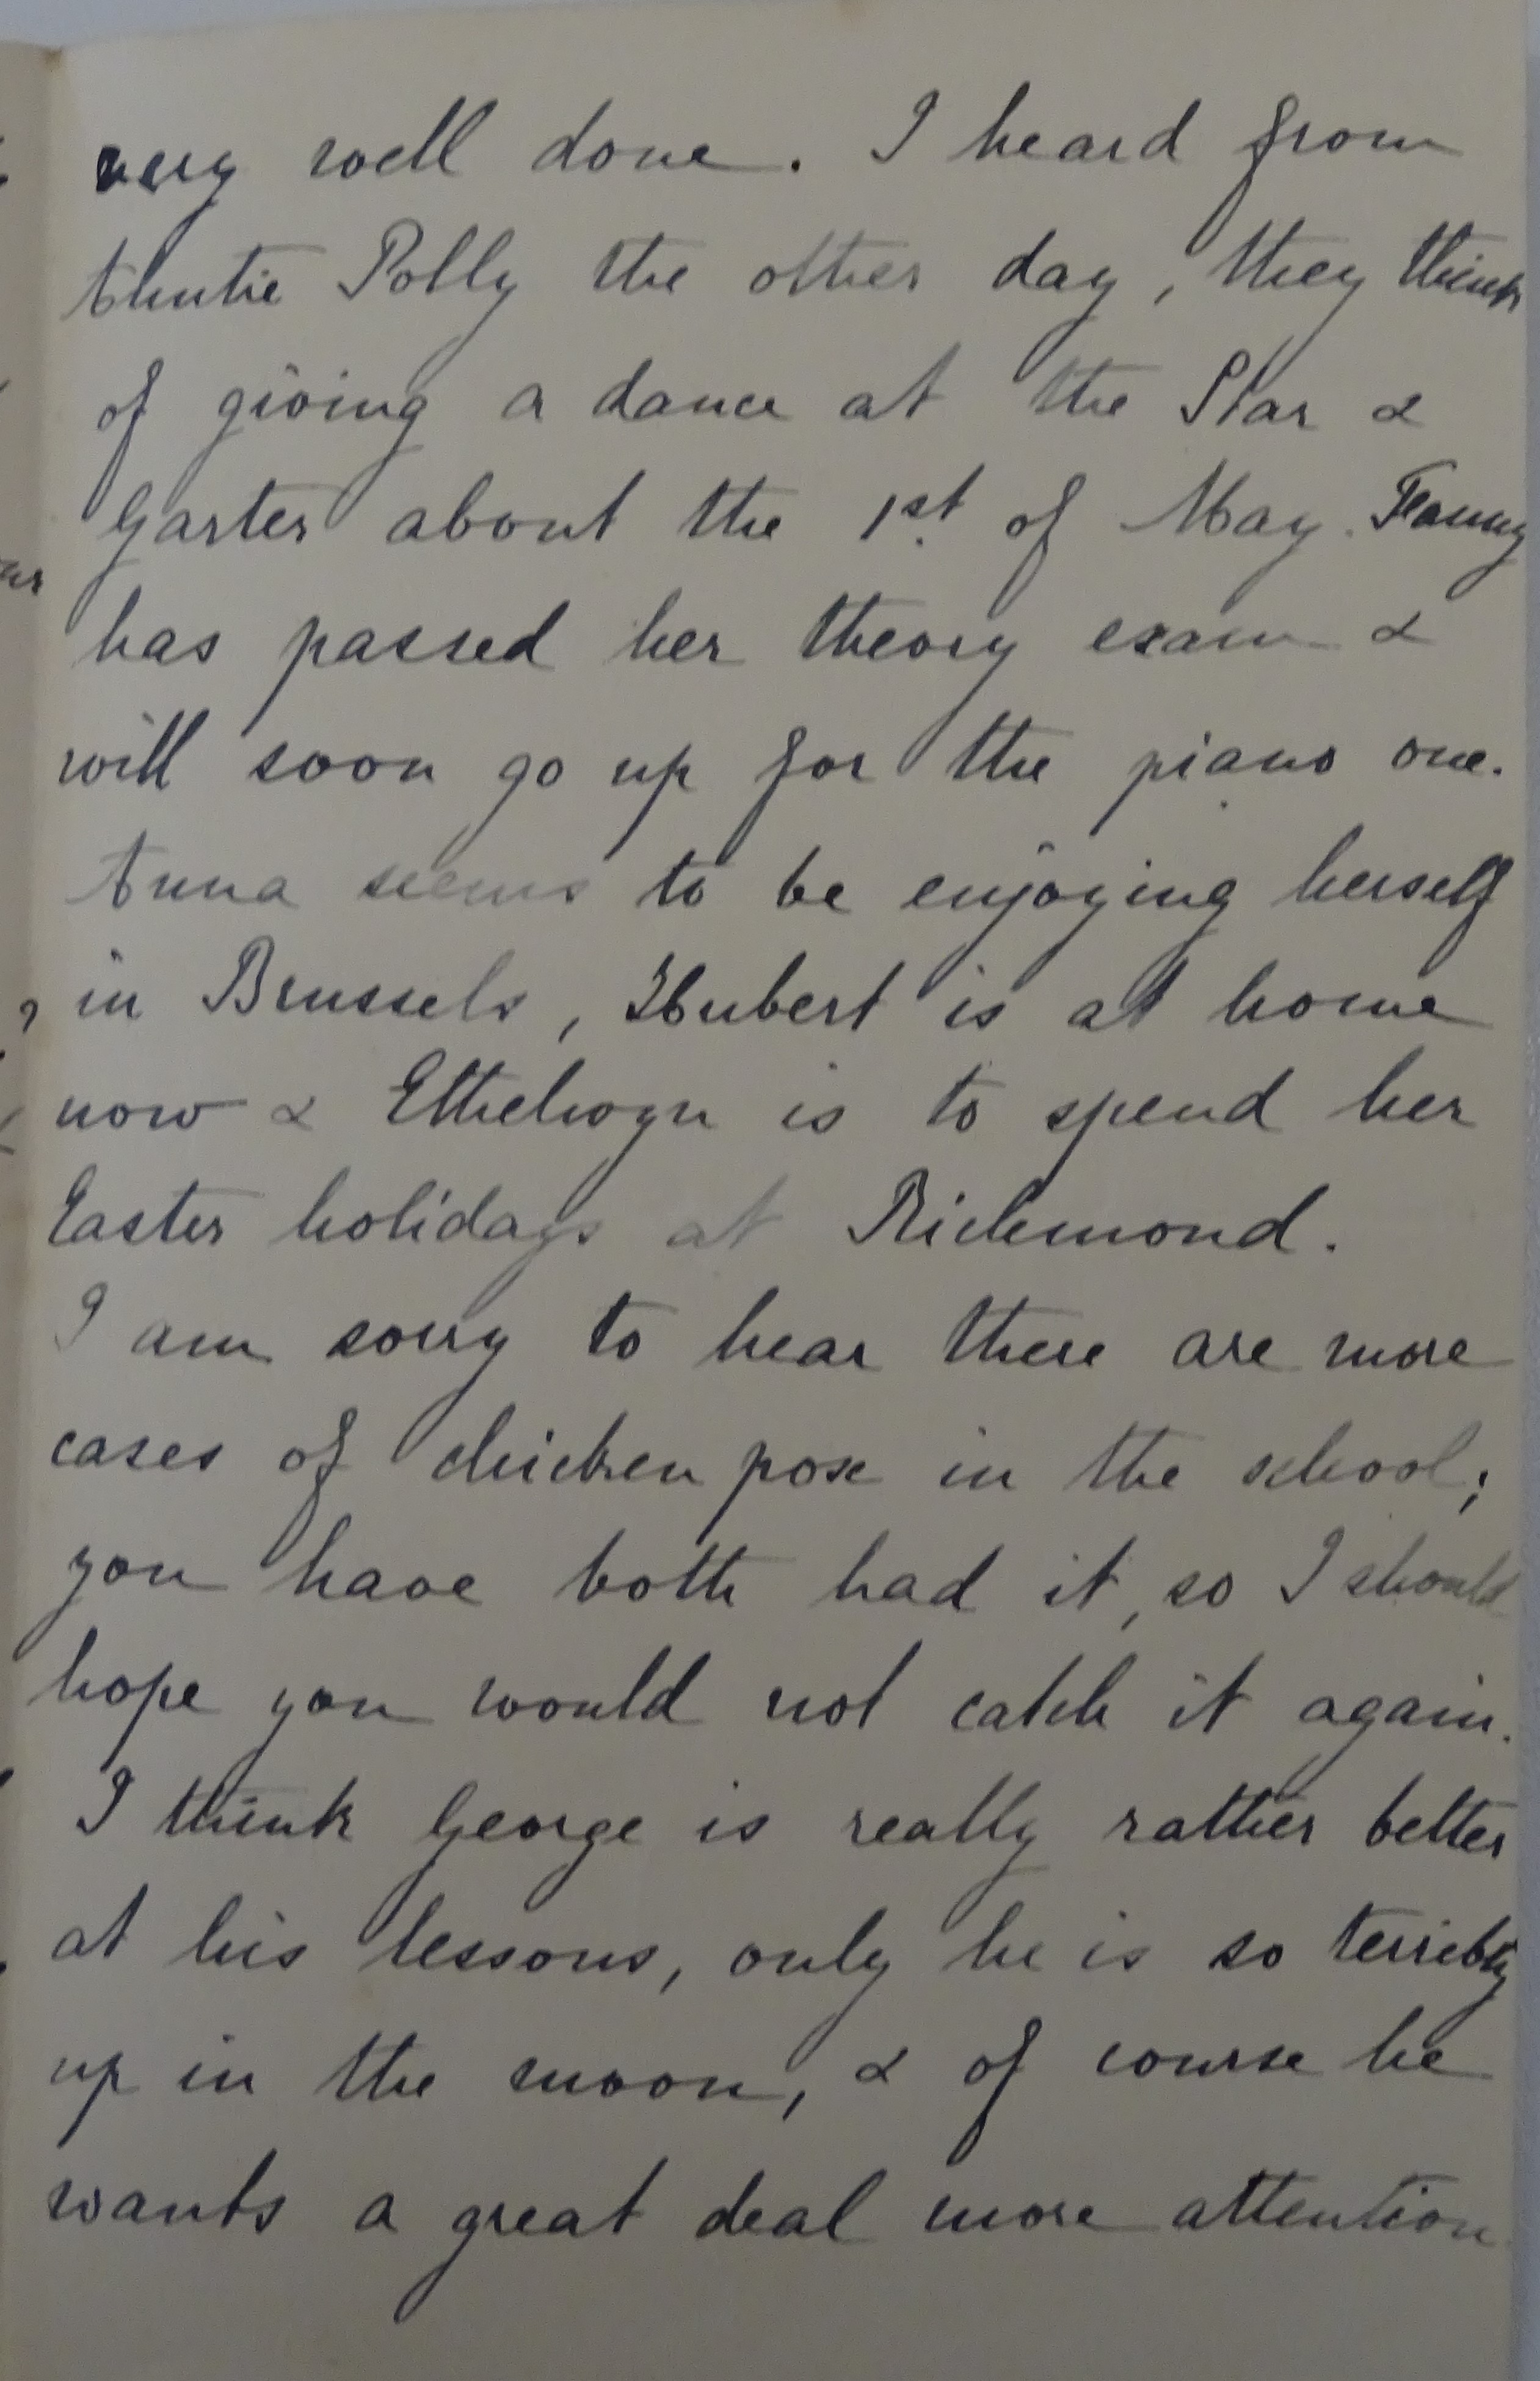 very well done. I heard from
Auntie Polly the other day, they think
of giving a dance at the Star &
Garter about the 1st. of May. Fanny
has passed her theory exam &
will soon go up for the piano one.
Anna seems to be enjoying herself
in Brussels, Hubert is at home
now & Ethelwyn is to spend her
Easter holidays at Richmond.
I am sorry to hear there are more
cases of chicken pox in the school;
you have both had it, so I should
hope you would not catch it again.
I think George is really rather better
at his lessons, only he is so terribly
up in the moon, & of course he
wants a great deal more attention